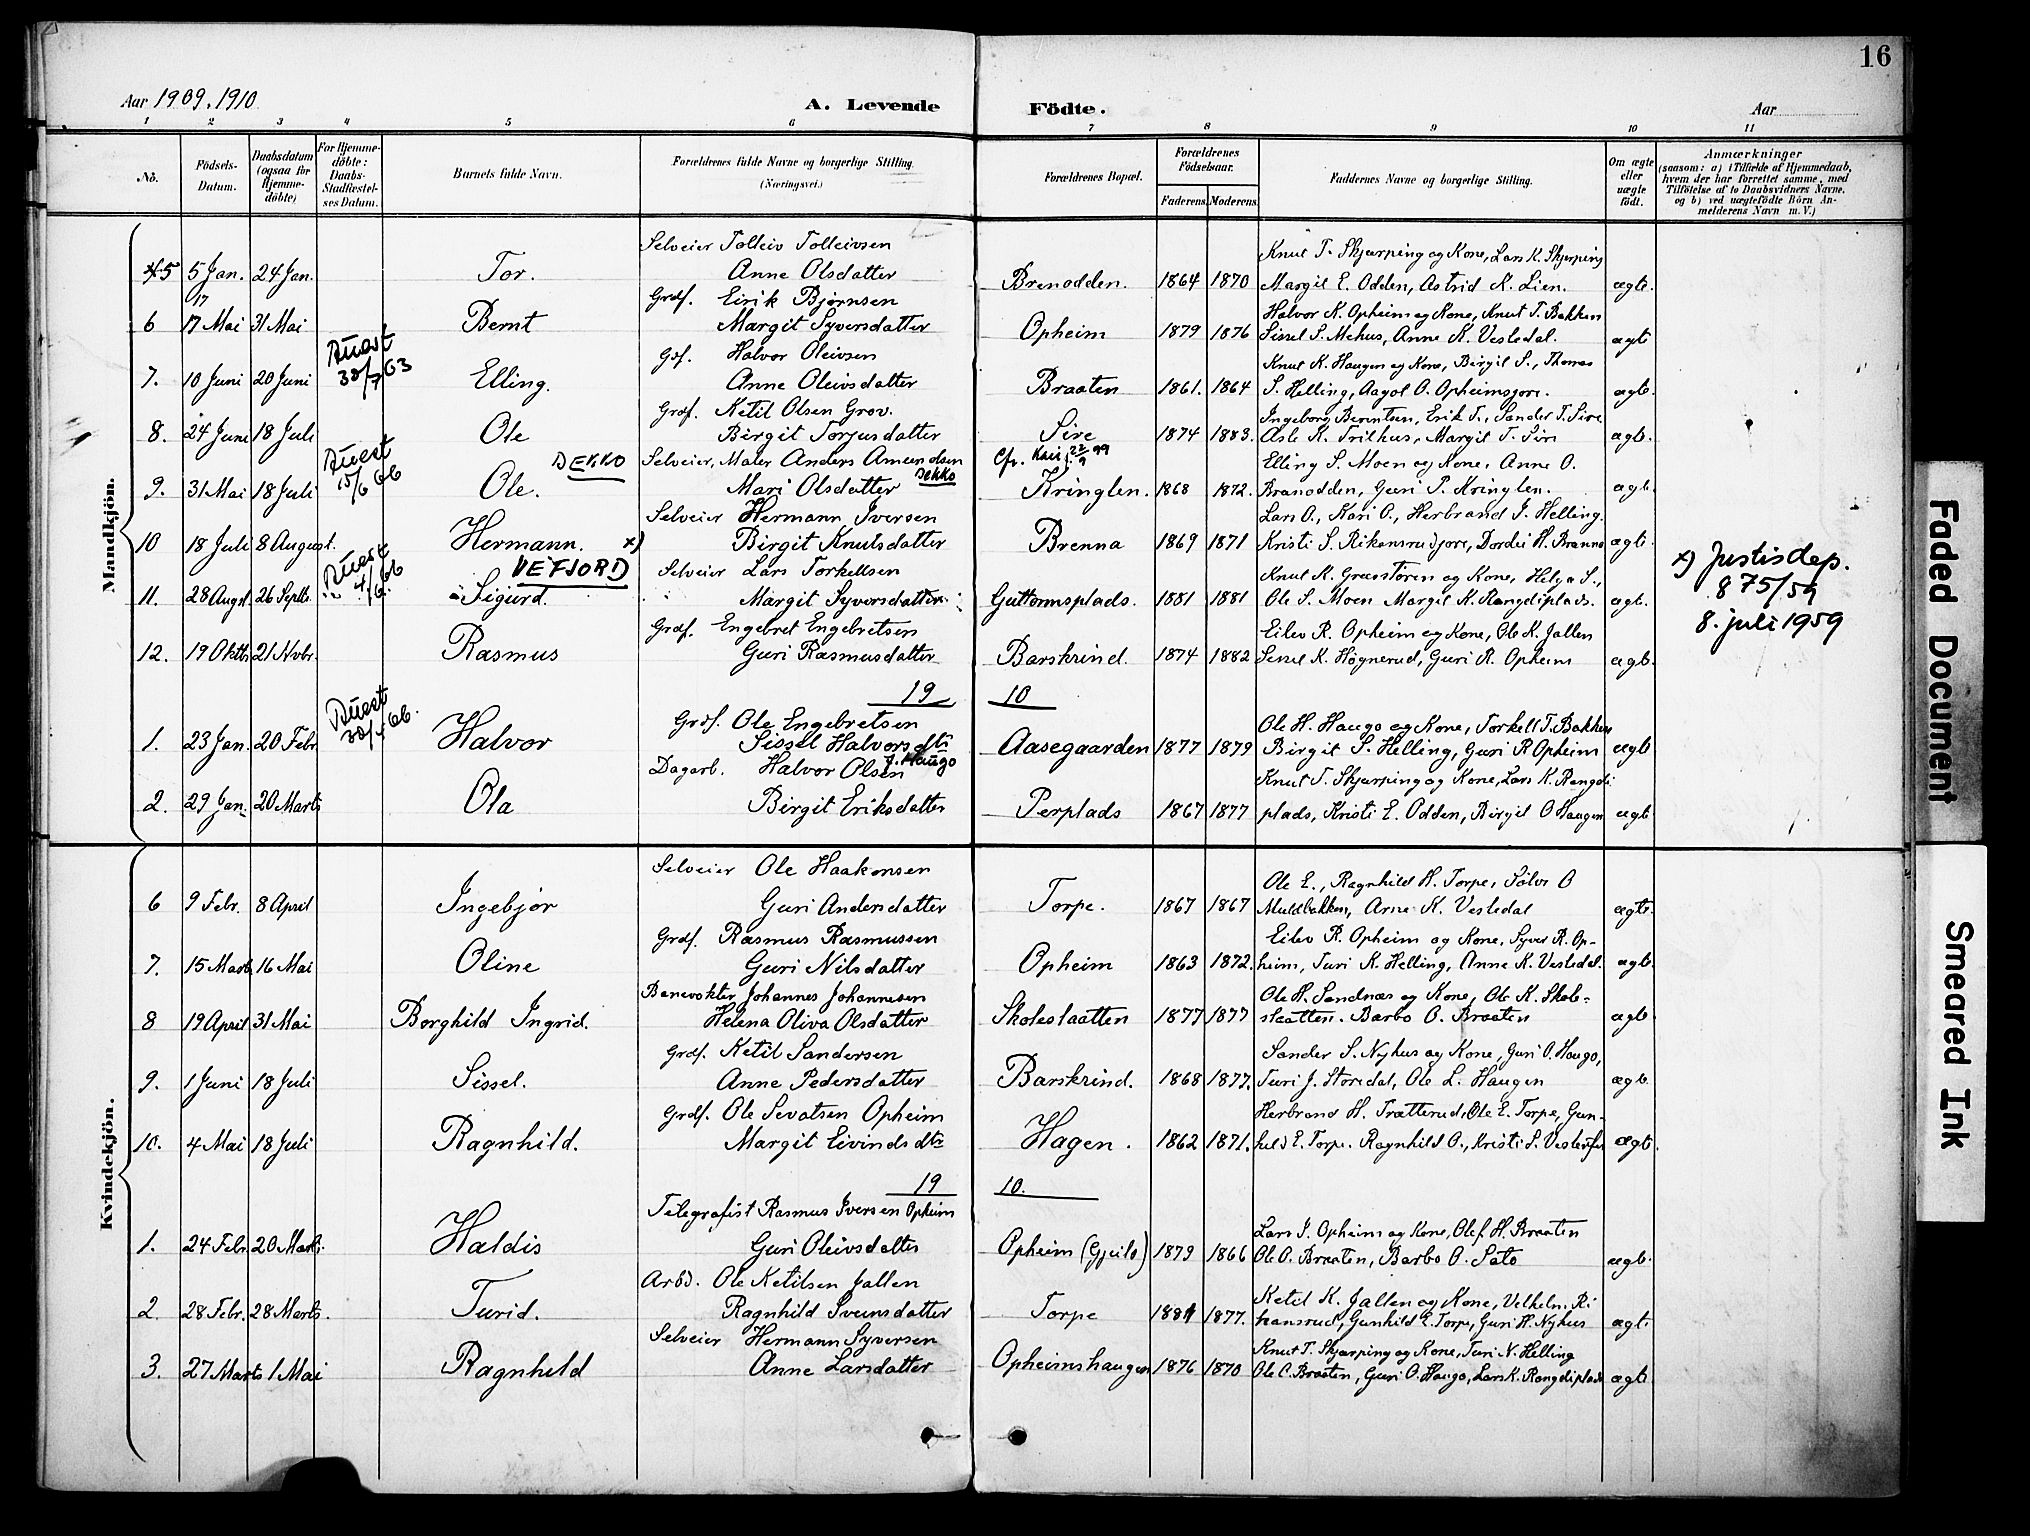 16
Aar 1909. 1910
A. Levende
Födte.
Aar
1 2 3 4 5 6 7 8 9 10 11
No.
Födsels-Datum.
Daabsdatum (ogsaa for Hjemme-döbte)
For Hjemme-döbte: Daabs-Stadfæstel-ses Datum.
Barnets fulde Navn.
Forældrenes fulde Navne og borgerlige Stilling. (Næringsvei.)
Forældrenes Bopæl.
Forældrenes Födselsaar.
Faderens. Moderens.
Faddernes Navne og borgerlige Stilling.
Om ægte eller uægte födt.
Anmærkninger
(saasom: a) i Tilfælde af Hjemmedaab, hvem der har forrettet samme, med Tilföielse af to Daabsvidners Navne, og b) ved uægtefödte Börn An-melderens Navn m. V.)
Mandkjön.
Selveier Tolleiv Tolleivsen Knut T. Skjærping og Kone, Lars K. Skjærping
5 5 Jan. 24 Jan. Tor. Anne Olsdatter Brenodden. 1864 1870 Margit E. Odden, Astrid K. Lien. ægte.
17 Grdf. Eirik Bjørnsen Halvor K. Opheim og Kone, Knut T. Bakken
6 17 Mai 31 Mai Bernt Margit Syversdatter Opheim 1879 1876 Sissel S. Mehus, Anne K. Vesledal. ægt
Attest 30/7 63 Gdf. Halvor Oleivsen Knut K. Haugen og Kone, Birgit S., Thomas
7. 10 Juni 20 Juni Elling. Anne Oleivsdatter Braaten 1861. 1864 S. Helling, Aagot O. Opheimsjore. ægte.
Grdf. Ketil Olsen Grov. Ingeborg Berintsen, Erik T., Sander T. Sire
8. 24 Juni 18 Juli Ole Birgit Torjusdatter Sire 1874 1883. Asle K. Trilhus, Margit T. Sire ægte.
Attest 15/6 66 DEKKO Selveier, Maler Anders Amundsen Cfr. Kari f. 23/9 99 Elling S. Moen og Kone, Anne O.
9. 31 Mai 18 Juli Ole. Mari Olsdatter DEKKO Kringlen. 1868 1872. Branodden, Guri P. Kringlen. ægte.
Selveier Hermann Iversen Lars O., Kari O., Herbrand J. Helling.
10 18 Juli 8 August. Hermann. x) Birgit Knutsdatter Brenna 1869 1871 Kristi S. Rikansrudjore, Dordei H. Brenna ægte.
Attest 4/6 66 VEFJORD Selveier Lars Torkellsen Knut K. Grønstøren og Kone, Helga S.,
11. 28 Augst 26 Septb. Sigurd. Margit Syversdatter Guttormsplads. 1881 1881 Ole S. Moen Margit K. Rangdiplads. ægte.
Grdf. Engebret Engebretsen Eilev R. Opheim og Kone, Ole K. Jallen
12. 19 Oktb. 21 Novbr. Rasmus Guri Rasmusdatter Barskrind. 1874 1882 Sissel K. Høgnerud, Guri R. Opheim ægte.
x) Justisdep.
875/59
8. juli 1959
19 10
Attest 30/ 66. Grdf. Ole Engebretsen Ole H. Haugo og Kone, Torkell T. Bakken
1. 23 Jan. 20 Febr. Halvor Sissel Halvorsdtr Aasegaarden 1877 1879 Birgit S. Helling, Guri R Opheim ægte
Dagarb. Halvor Olsen J. Haugo Knut T. Skjærping og Kone, Lars K. Rangdi
2. 29 Jan. 20 Marts Ola Birgit Eriksdatter Perplads 1867 1877 plads, Kristi E. Odden, Birgit O Haugen ægte
Kvindekjön.
Selveier Ole Haakonsen Ole E., Ragnhild H. Torpe, Sølvi O
6 9 Febr. 8 April Ingebjør Guri Andersdatter Torpe. 1867 1867 Muldbakken, Arne K. Vesledal ægte.
Grdf. Rasmus Rasmussen Eilev R. Opheim og Kone, Syver R. Op-
7. 15 Marts 16 Mai Oline Guri Nilsdatter Opheim 1863 1872. heim, Turi K. Helling, Anne K. Vesledal. ægte.
Banevokter Johannes Johannesen Ole H. Sandnæs og Kone, Ole K. Skole-
8 19 April 31 Mai Borghild Ingrid. Helena Oliva Olsdatter Skoleslaatten 1877 1877 slaatten. Barbo O. Braaten ægte.
Grdf. Ketil Sandersen Sander S. Nyhus og Kone, Guri O. Haugo,
9. 1 Juni 18 Juli Sissel. Anne Pedersdatter Barskrind. 1868 1877. Turi J. Storedal, Ole L. Haugen ægte.
Grdf. Ole Sevatsen Opheim Herbrand H. Trætterud, Ole E. Torpe, Gun-
10. 4 Mai 18 Juli Ragnhild. Margit Eivindsdtr Hagen. 1862 1871. hild E. Torpe. Ragnhild O., Kristi S. ægte.
19 10.
Telegrafist Rasmus Iversen Opheim Lars I. Opheim og Kone, Olef H. Braaten
1. 24 Febr. 20 Marts. Haldis Guri Oleivsdatter Opheim (Gjeilo) 1879 1866 Ole O. Braaten, Barbo O. Sato ægte.
Arbd. Ole Ketilsen Jallen Ketil K. Jallen og Kone, Velhelm. Ri
2. 28 Febr. 28 Marts. Turid. Ragnhild Svensdatter Torpe 1881 1877. hansrud, Gunhild E. Torpe, Guri H. Nyhus ægte
Selveier Hermann Syversen Knut T. Skjærping og Kone, Turi N. Helling
3. 27 Marts 1 Mai Ragnhild Anne Larsdatter Opheimshaugen 1876 1870 Ole C. Braaten, Guri O. Haugo, Lars K. Rangdiplads ægte.
Faded Document
Smeared Ink